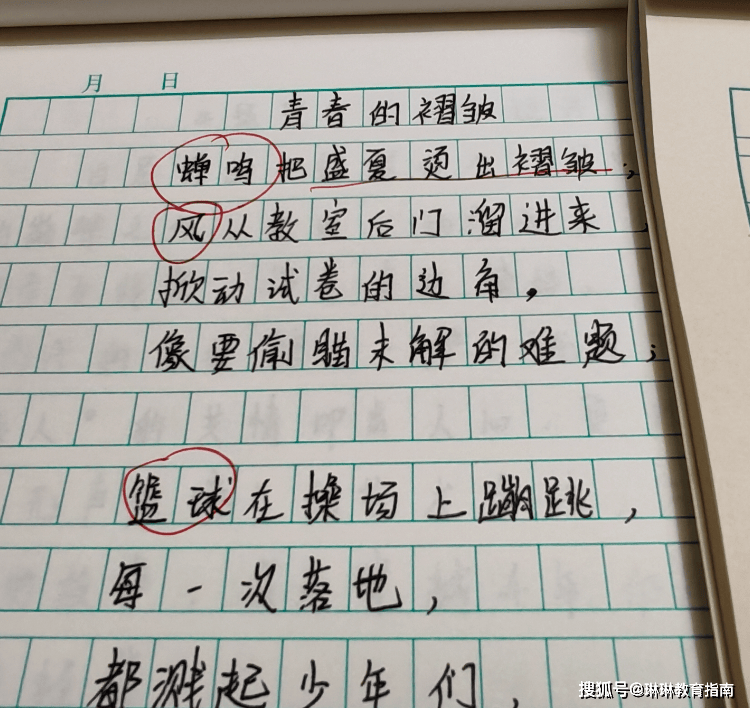 月 日
青春的褶皱
蝉鸣把盛夏烫出褶皱;
风从教室后门溜进来
掀动试卷的边角,
像要偷瞄未解的难题;
篮球在操场上蹦跳,
每一次落地,
都溅起少年们,
搜狐号@琳琳教育指南